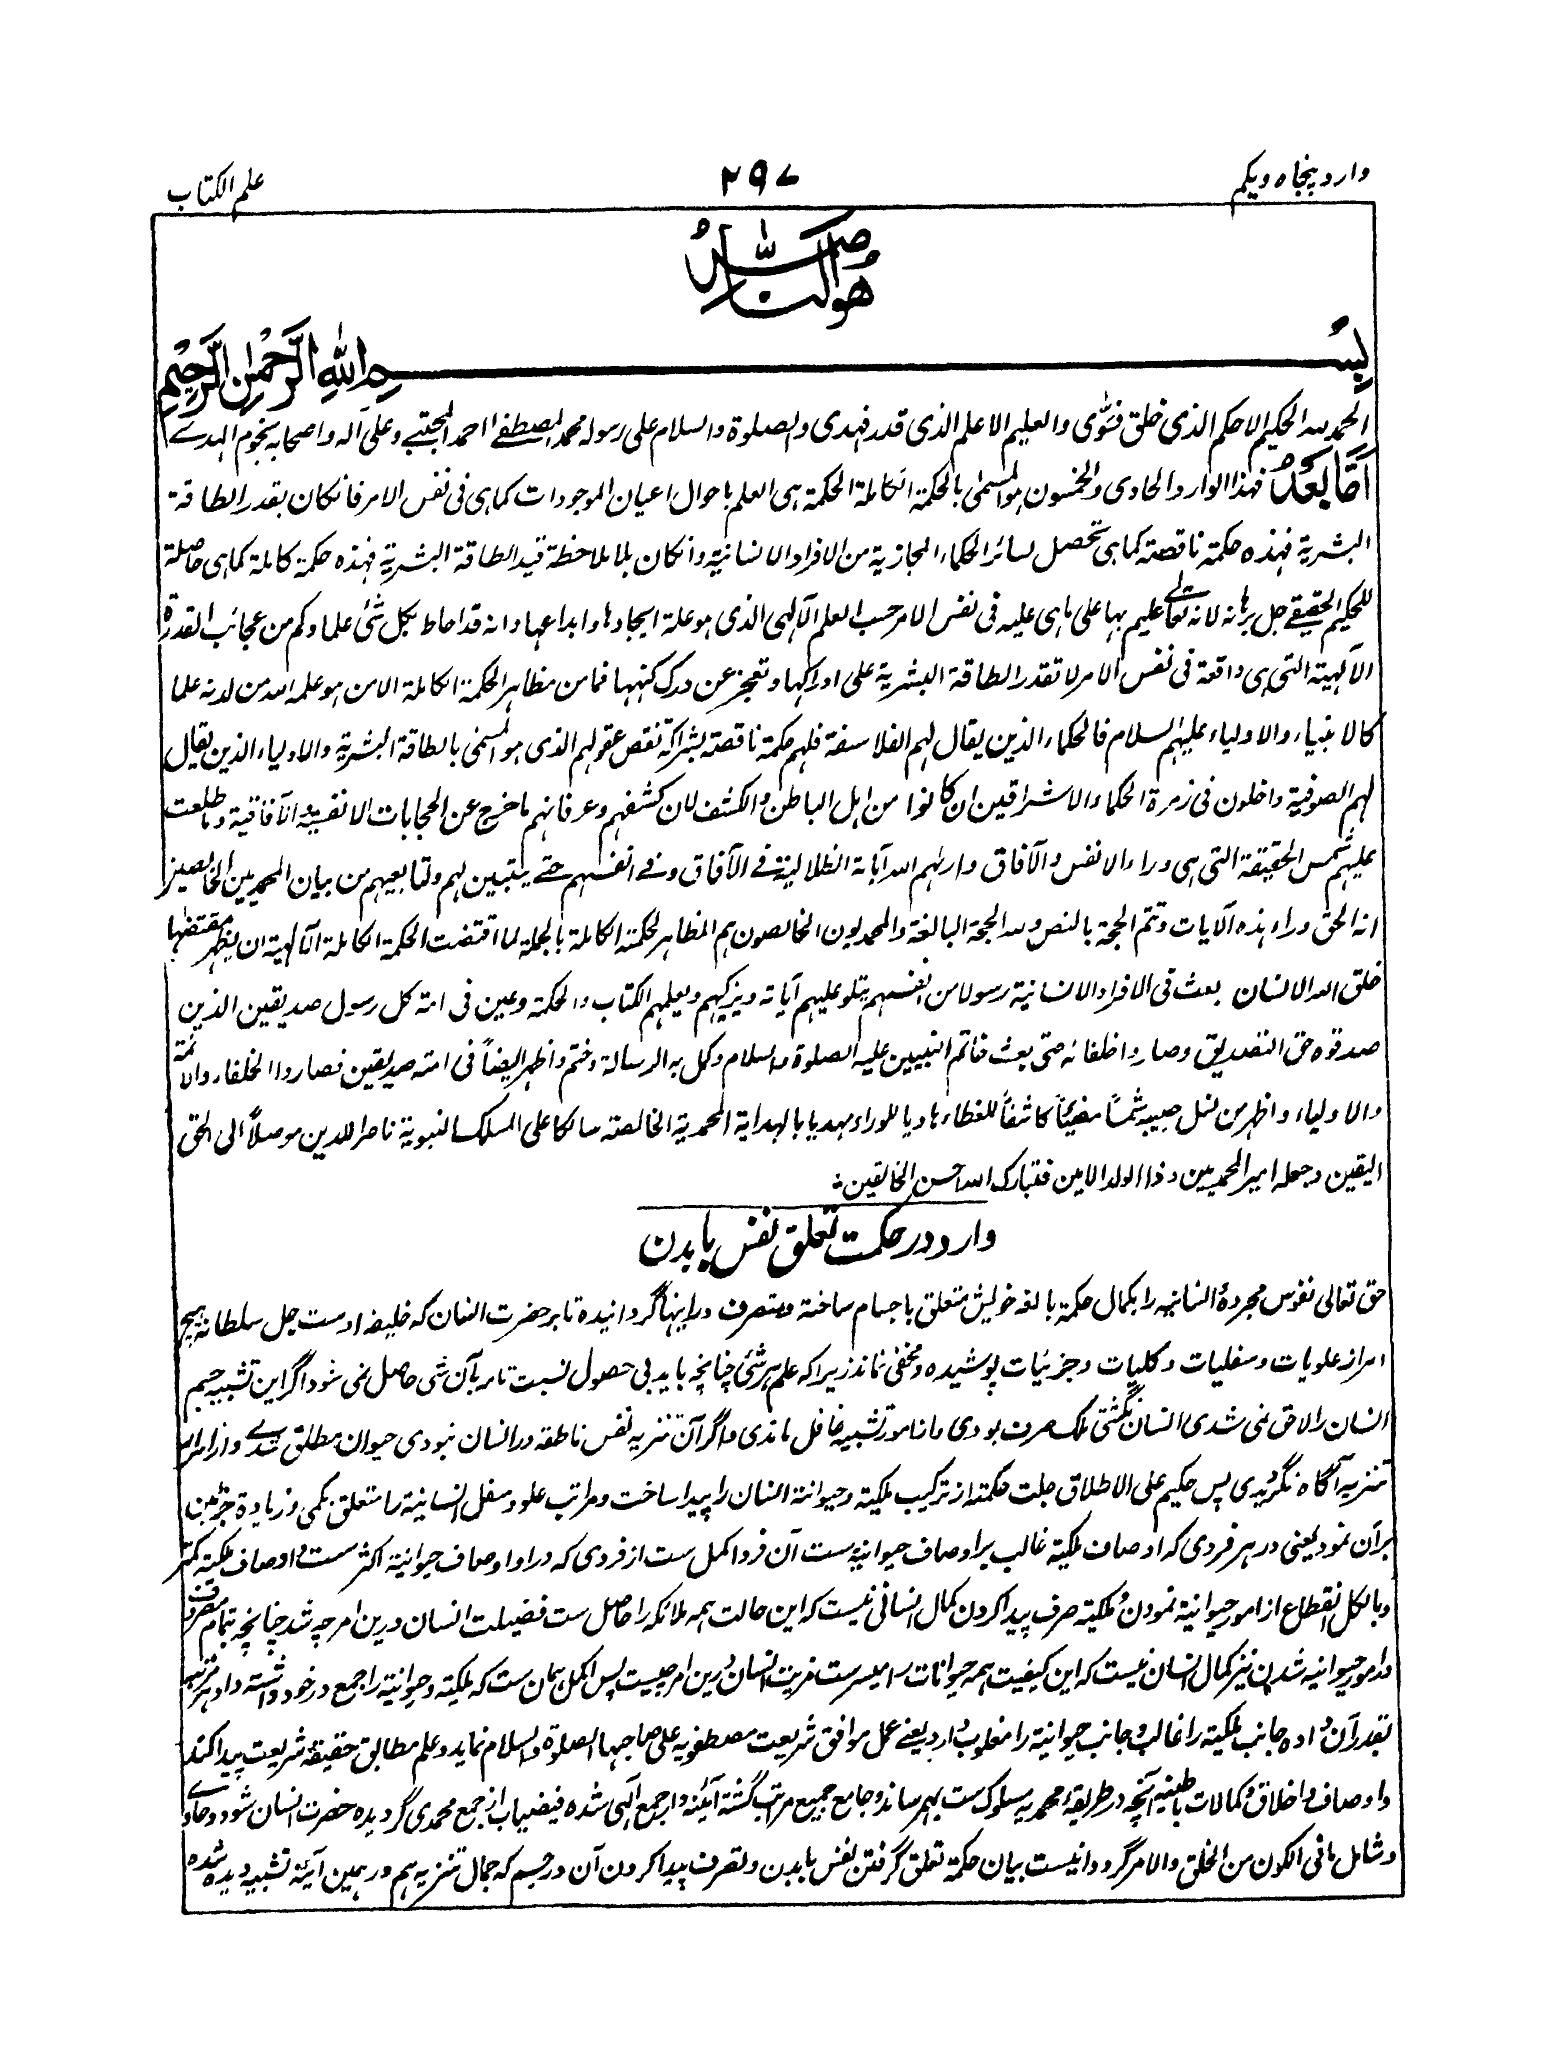 وارد پنجاه ویکم
۲۹۷
علم الکتاب
هو الناصر
بسم الله الرحمن الرحیم
الحمد لله الحکیم الاحکم الذی خلق فسوّی والعلیم الاعلم الذی قدر فهدی والصلوة والسلام علی رسوله محمد المصطفے احمد المجتبے وعلی آله واصحابه نجوم الهدے
امّا بعدُ فهذا الوارد الحادی والخمسون هو المسمی بالحکمة الکاملة الحکمة هی العلم باحوال اعیان الموجودات کما هی فی نفس الامر فانکان بقدر الطاقة
البشریة فهذه حکمة ناقصة کما هی تحصل لسائر الحکماء المجازیة من الافراد الانسانیة وانکان بلا ملاحظة قید الطاقة البشریة فهذه حکمة کاملة کما هی حاصلة
للحکیم الحقیقے جل برهانه لانه تعالے علیم بها علی ما هی علیه فی نفس الامر حسب العلم الآلهی الذی هو علة ایجادها وابداعها وانه قد احاط بکل شئ علما وکم من عجائب القدرة
الآلهیة التی هی واقعة فی نفس الامر لا تقدر الطاقة البشریة علی ادراکها وتعجز عن درک کنهها فما من مظاهر الحکمة الکاملة الا من هو علمه الله من لدنه علما
کالانبیاء والاولیاء علیهم السلام فالحکماء الذین یقال لهم الفلاسفة فلهم حکمة ناقصة بشراکة نقص عقولهم الذی هو المسمی بالطاقة البشریة والاولیاء الذین یقال
لهم الصوفیة داخلون فی زمرة الحکماء والاشراقین ان کانوا من اهل الباطن والکشف لان کشفهم وعرفانهم ما خرج عن الحجابات الانفسیة والآفاقیة وما طلعت
علیهم شمس الحقیقة التی هی وراء الانفس والآفاق وارٰهم الله آیاته الظلالیة فے الآفاق وفے انفسهم حتے یتبین لهم ولتابعیهم من بیان المحمدیین الخالصین
انه الحق وراء هذه الآیات وتتم الحجة بالنص ولله الحجة البالغة والمحمدیون الخالصون هم المظاهر لحکمته الکاملة بالجملة لما اقتضت الحکمة الکاملة الآلهیة ان یظهر مقتضٰها
خلق الله الانسان بعث فی الافراد الانسانیة رسولا من انفسهم یتلو علیهم آیاته ویزکیهم ویعلمهم الکتاب والحکمة وعین فی امة کل رسول صدیقین الذین
صدقوه حق التصدیق وصاروا خلفائه حتی بعث خاتم النبیین علیه الصلوة والسلام وکمل به الرسالة وختم واظهر ایضاً فی امته صدیقین فصاروا الخلفاء والائمة
والاولیاء واظهر من نسل حبیبه شمساً مضیئاً کاشفاً للغطاء هادیا للوراء مهدیا بالهدایة المحمدیة الخالصة سالکا علی المسلک النبویة ناصرا للدین موصلاً الی الحق
الیقین وجعله امیر المحمدیین وذا الولد الامین فتبارک الله احسن الخالقین
وارد در حکمت تعلق نفس با بدن
حق تعالی نفوس مجردهٔ انسانیه را بکمال حکمة بالغه خویش متعلق باجسام ساخته ومتصرف در اینها گردانیده تا بر حضرت انسان که خلیفه اوست جل سلطانه هیچ
امر از علویات وسفلیات وکلیات وجزئیات پوشیده ومخفی نماند زیرا که علم هر شئ چنانچه باید بی حصول نسبت تامه بآن شی حاصل نمی شود اگر این تشبیه جسم
انسان را لاحق نمی شدی انسان نگشتی ملک صرف بودی واز امور تشبیه غافل ماندی واگر آن تنزیه نفس ناطقه در انسان نبودی حیوان مطلق شدے واز امر
تنزیه آگاه نگردیدی پس حکیم علی الاطلاق جلت حکمته از ترکیب ملکیة وحیوانیة انسان را پیدا ساخت ومراتب علو وسفل انسانیة را متعلق بکمی وزیادة جزئین
برآن نمود یعنی در هر فردی که اوصاف ملکیة غالب بر اوصاف حیوانیه ست آن فرد اکمل ست از فردی که در او اوصاف حیوانیة اکثر ست واوصاف ملکیة کمتر
وبالکل انقطاع از امور حیوانیة نمودن وملکیة صرف پیدا کردن کمال انسانی نیست که این حالت همه ملائکه را حاصل ست فضیلت انسان درین امر چه شد چنانچه بتمام مصروف
در امور حیوانیه شدن نیز کمال انسان نیست که این کیفیت همه حیوانات را میسرست مزیت انسان درین امر چیست پس اکمل همان ست که ملکیة وحیوانیة را جمع در خود داشته داد هر مرتبه
بقدر آن داده جانب ملکیة را غالب وجانب حیوانیة را مغلوب دارد یعنے عمل موافق شریعت مصطفویه علی صاحبها الصلوة والسلام نماید وعلم مطابق حقیقة شریعت پیدا کند
واوصاف واخلاق وکمالات باطنیه آنچه در طریقهٔ محمدیه سلوک ست بهم رساند وجامع جمیع مراتب گشته آئینه وار جمع الٓهی شده فیضیاب از جمع محمدی گردیده حضرت انسان شود وحاوے
وشامل ما فی الکون من الخلق والامر گردد اینست بیان حکمة تعلق گرفتن نفس با بدن وتصرف پیدا کردن آن در جسم که جمال تنزیه هم در همین آئینهٔ تشبیه دیده شده